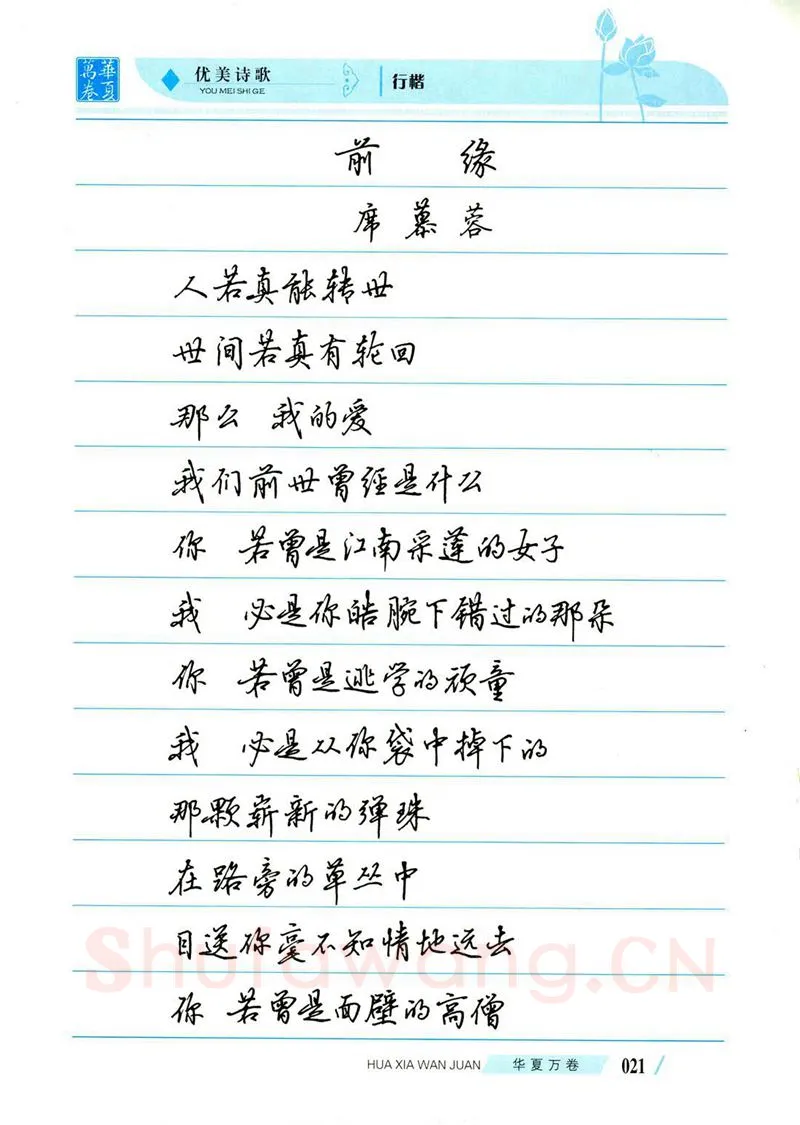 華夏萬卷
优美诗歌
YOU MEI SHI GE
行楷
前 缘
席慕蓉
人若真能转世
世间若真有轮回
那么 我的爱
我们前世曾经是什么
你 若曾是江南采莲的女子
我 必是你皓腕下错过的那朵
你 若曾是逃学的顽童
我 必是从你袋中掉下的
那颗崭新的弹珠
在路旁的草丛中
目送你毫不知情地远去
你 若曾是面壁的高僧
Shufawang.CN
HUA XIA WAN JUAN
华夏万卷
021